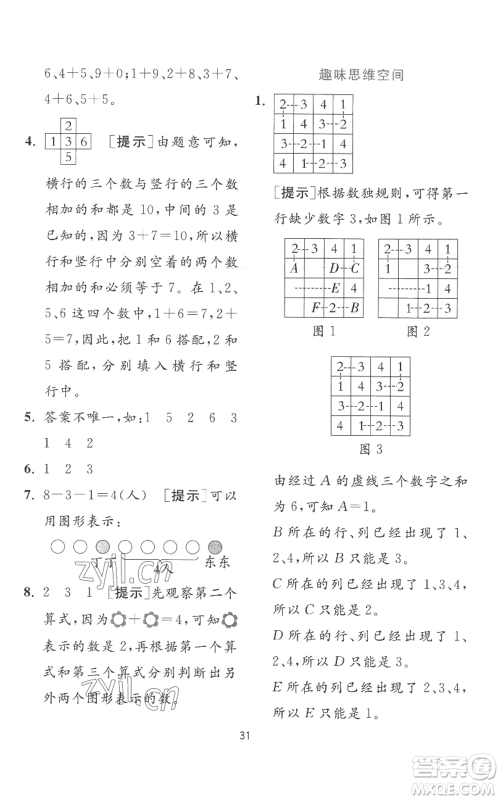 6,4+5,9+1,2+8,3+7,
4+6,5+5。
4.
2
1 3 6
5
[提示]由题意可知,
横行的三个数与竖行的三个数
相加的和都是10,中间的3是
已知的,3+7=10,所以横
行和竖行中分别空着的两个数
相加的和必须等于7。在1、2、
5、6这四个数中,1+6=7,2+
5=7。因此,1和6搭配,2和
5搭配,分别填入横行和竖
行中。
5. 答案不唯一,如:1 5 2 6 3
1 4 2
6. 1 2 3
7. 8-3-1=4(人) [提示]可以
用图形表示:
丁丁 4人 东东
8. 2 3 1 [提示]先观察第二个
算式,因为+=4,可知
表示的数是2,再根据第一个算
式和第三个算式分别判断出另
外两个图形表示的数。
趣味思维空间
1.
2 3 4 1
1 4 3 2
3 2 1 4
4 1 2 3
[提示]根据数独规则,可得第一
行缺少数字3,如图1所示。
2 3 4 1
A D C
E 4
F 2 B
图1
2 3 4 1
1 4
4
1 2 3
图2
2 3 4 1
1 4 3 2
3 2 1 4
4 1 2 3
图3
由经过A的虚线三个数字之和
为6,可知A=1。
B所在的行、列已经出现了1、
2、4,所以B只能是3。
C所在的列已经出现了1、3、
4,所以C只能是2。
D所在的行、列已经出现了1、
2、4,所以D只能是3。
E所在的列已经出现了2、3、
4,所以E只能是1。
31
zyjl.cn
zyjl.cn